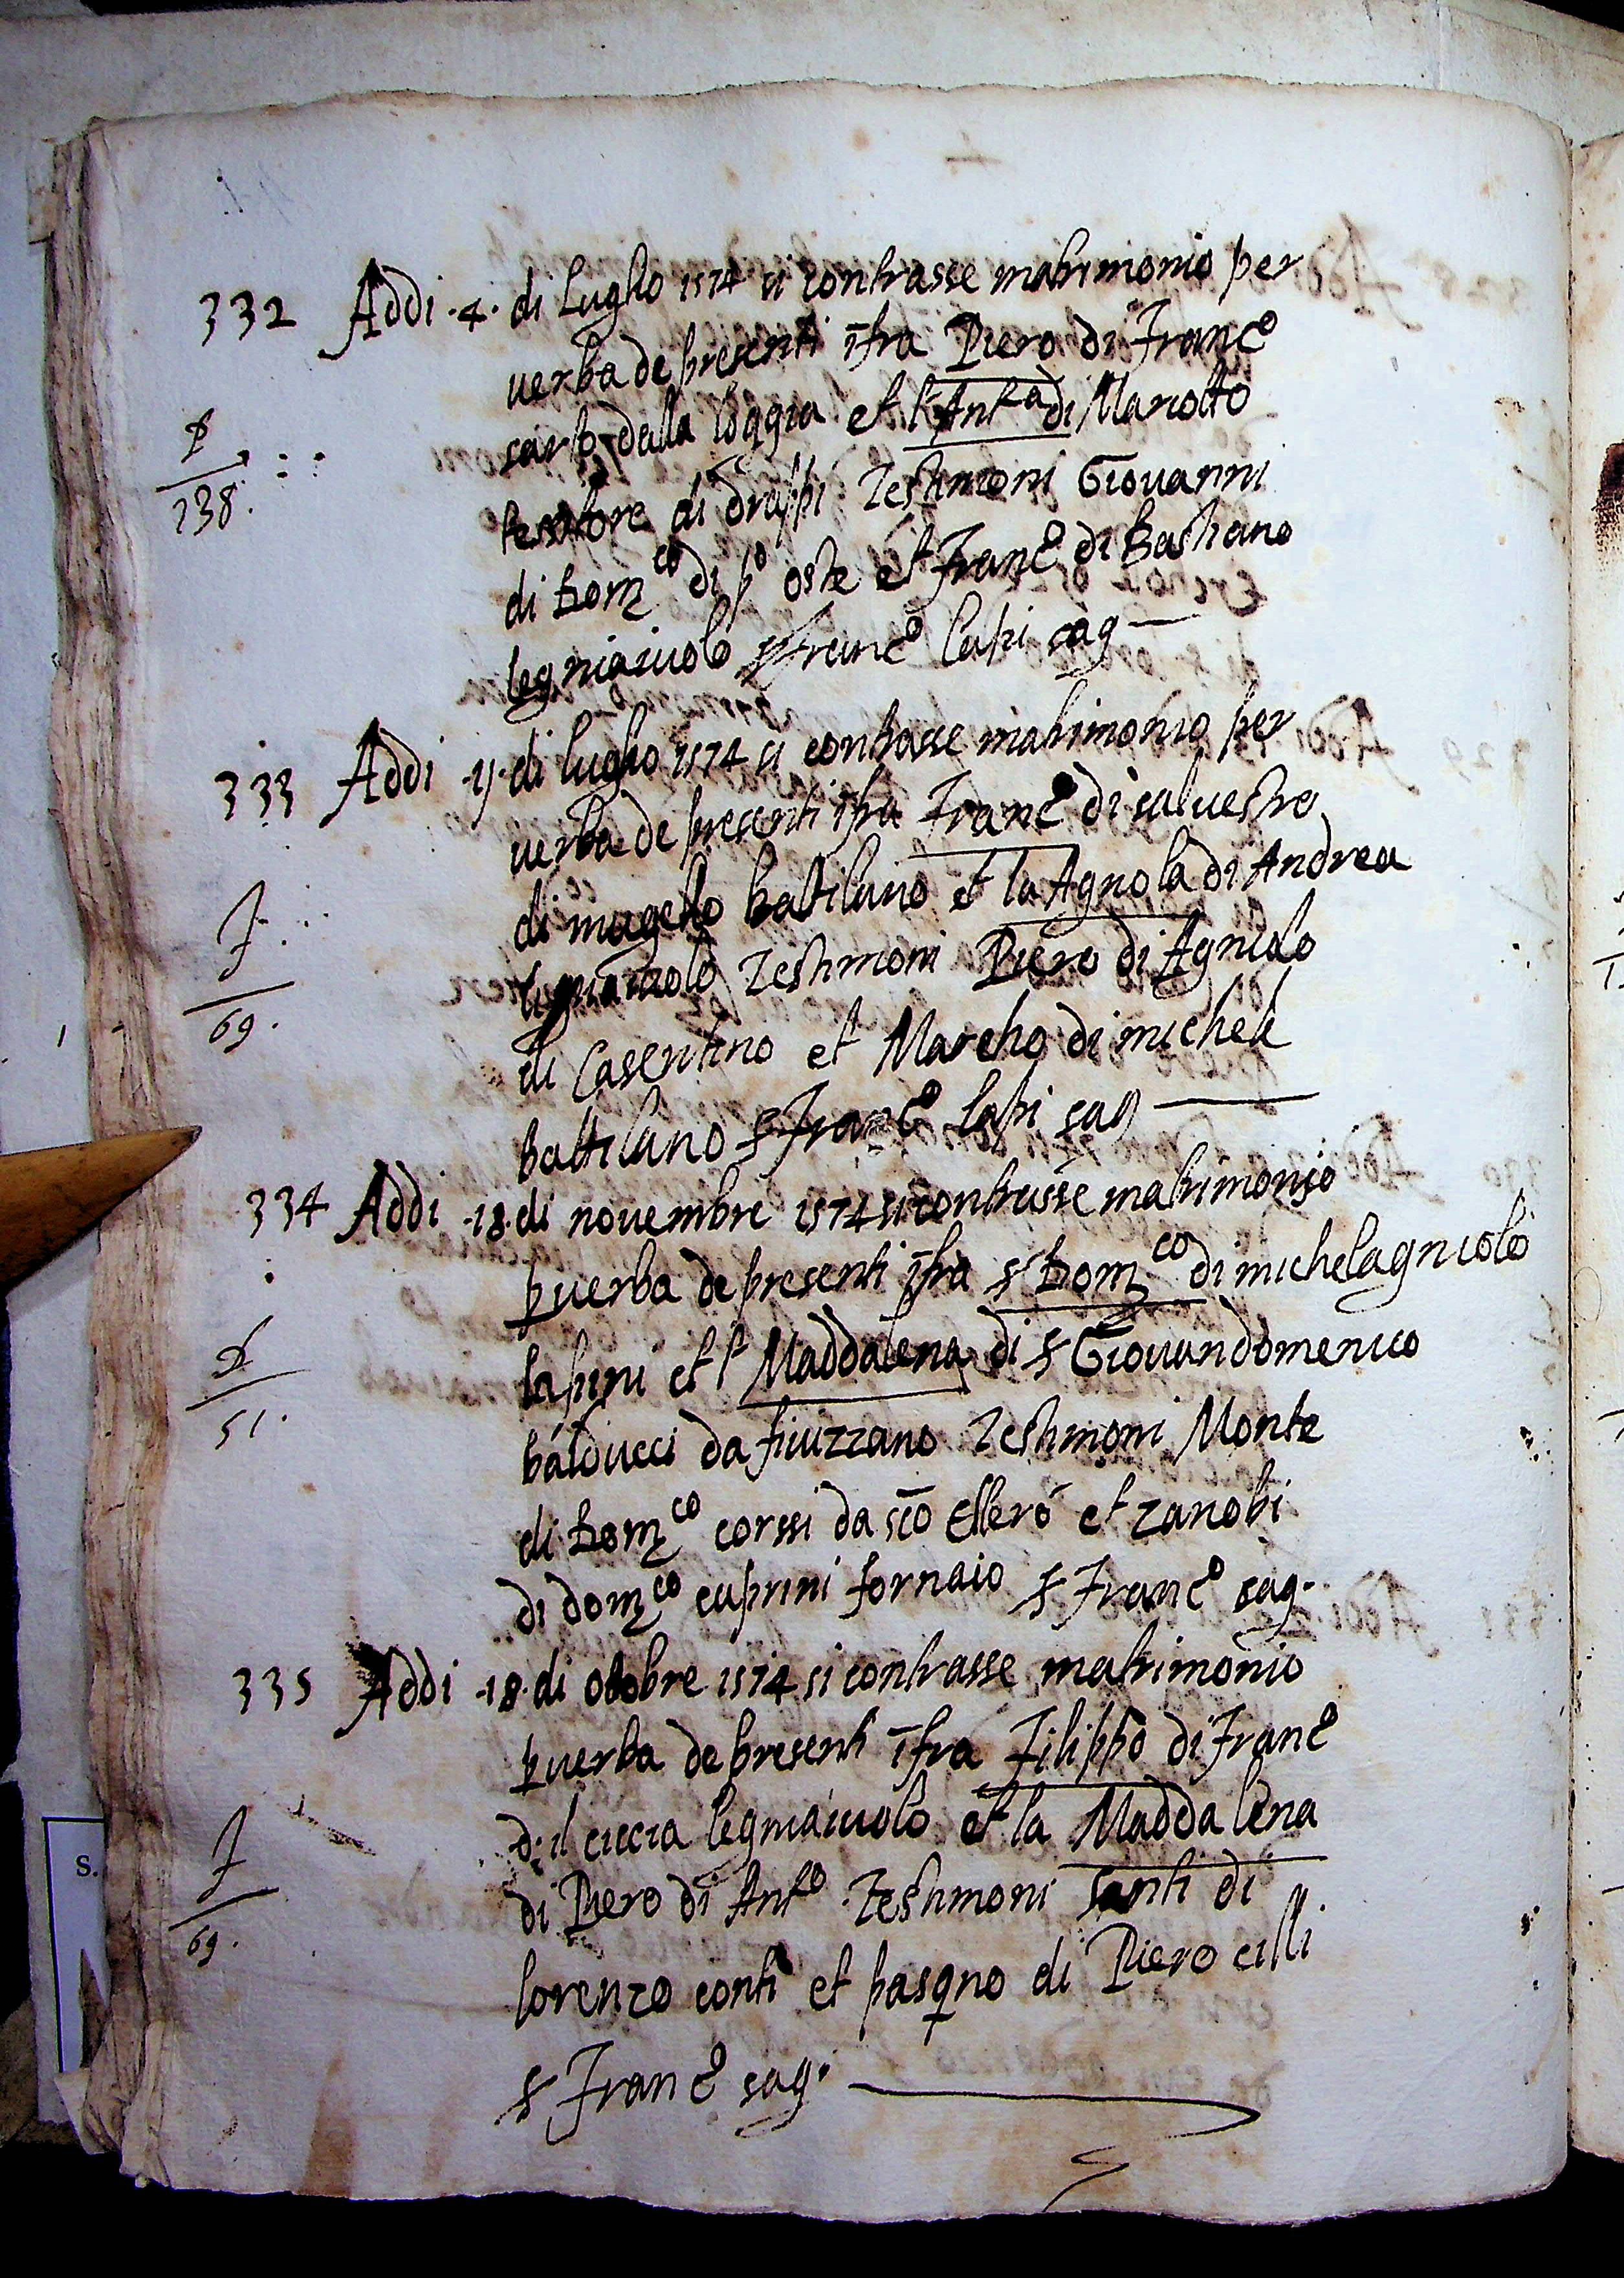 332 Addi .4. di Luglio 1574 si contrasse matrimonio per
verba de presenti ĩfra Piero di Franc.o
sarto dalla loggia et l'Ant.a di Mariotto
P
138.
tessitore di drappi Testimoni Giovanni
di Dom.co di p.o oste et Franc.o di Bastiano
legniaiuolo s Franc.o lapi sag
333 Addi di luglio 1574 si contrasse matrimonio per
verba de presenti ĩfra Franc.o di salvestro
di mugello battilano et la Agnola di Andrea
F
69.
legniaiuolo Testimoni Piero di Agnolo
di Casentino et Marcho di michele
battilano s Franc.o lapi sag
334 Addi .18. di novembre 1574 si contrasse matrimonio
p verba de presenti ĩfra s Dom.co di michelagniolo
lapini et l Maddalena di s Giovandomenico
D
51.
balducci da fivizzano Testimoni Monte
di Dom.co corssi da sc̃o Ellero et zanobi
di dom.co caprini fornaio s Franc.o sag.
335 Addi .18. di otobre 1574 si contrasse matrimonio
p verba de presenti ĩfra Filippo di Franc.o
d il ciccia legniaiuolo et la Maddalena
F
69.
di Piero di Ant.o Testimoni santi di
lorenzo conti et pasqno di Piero cilli
s Franc.o sag.
S.